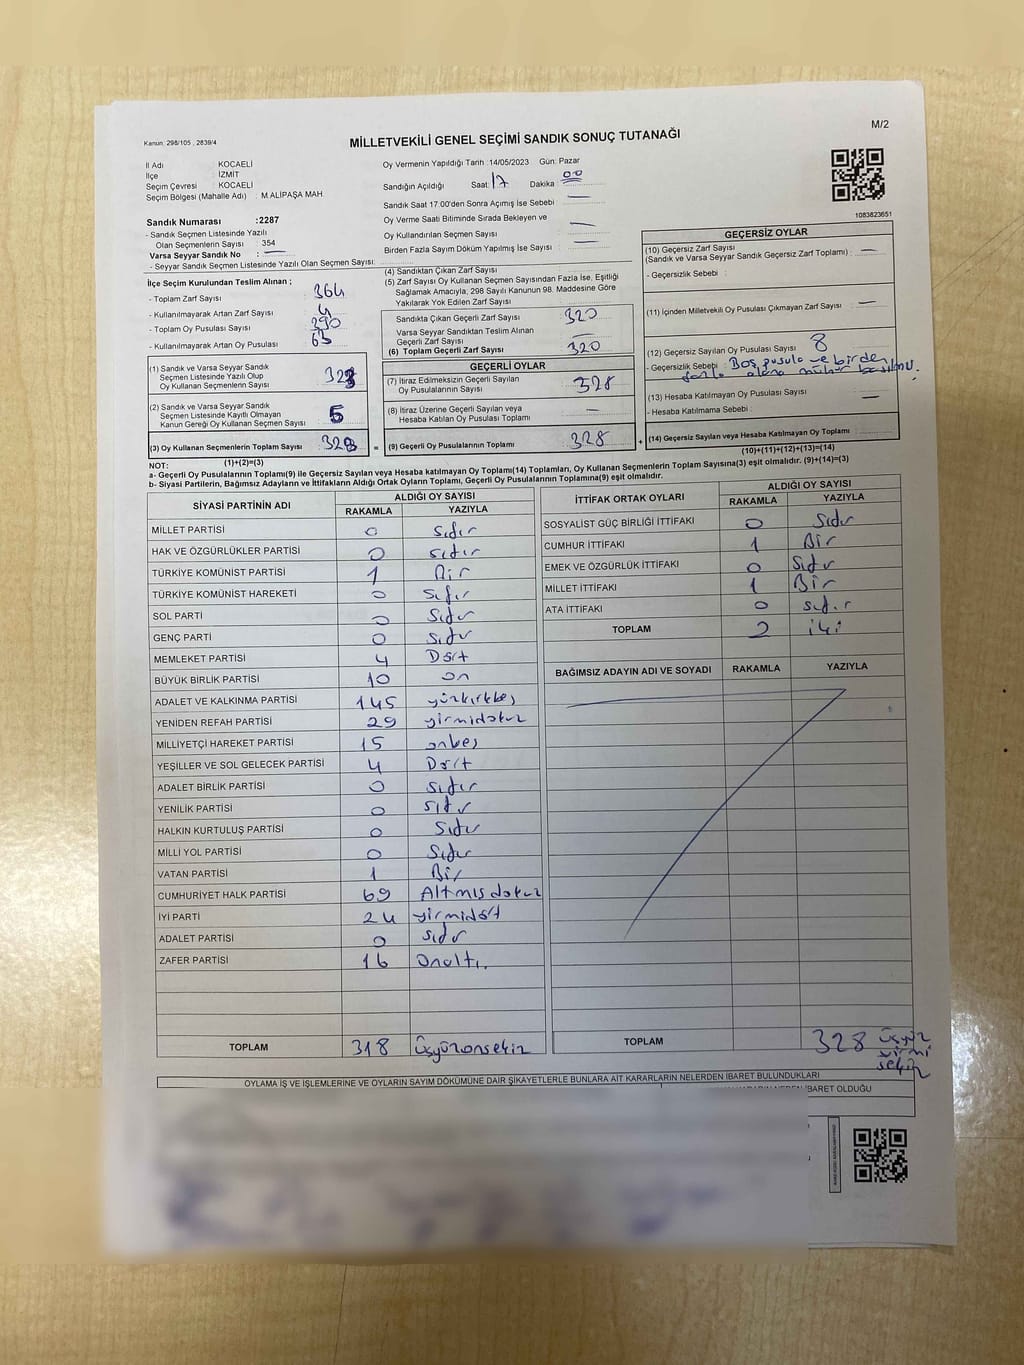 M/2
Kanun: 298/105 , 2839/4
MİLLETVEKİLİ GENEL SEÇİMİ SANDIK SONUÇ TUTANAĞI
İl Adı KOCAELİ
İlçe İZMİT
Seçim Çevresi KOCAELİ
Seçim Bölgesi (Mahalle Adı) : M ALİPAŞA MAH.
Sandık Numarası :2287
- Sandık Seçmen Listesinde Yazılı
Olan Seçmenlerin Sayısı : 354
Varsa Seyyar Sandık No : —
- Seyyar Sandık Seçmen Listesinde Yazılı Olan Seçmen Sayısı:
İlçe Seçim Kurulundan Teslim Alınan ;
- Toplam Zarf Sayısı : 364
- Kullanılmayarak Artan Zarf Sayısı : 4
- Toplam Oy Pusulası Sayısı : 390
- Kullanılmayarak Artan Oy Pusulası : 65
(1) Sandık ve Varsa Seyyar Sandık
Seçmen Listesinde Yazılı Olup
Oy Kullanan Seçmenlerin Sayısı
(2) Sandık ve Varsa Seyyar Sandık
Seçmen Listesinde Kayıtlı Olmayan
Kanun Gereği Oy Kullanan Seçmen Sayısı 5
(3) Oy Kullanan Seçmenlerin Toplam Sayısı 328 =
Oy Vermenin Yapıldığı Tarih :14/05/2023 Gün: Pazar
Sandığın Açıldığı Saat: 17 Dakika : 00
Sandık Saat 17.00'den Sonra Açımış İse Sebebi : —
Oy Verme Saati Bitiminde Sırada Bekleyen ve
Oy Kullandırılan Seçmen Sayısı : —
Birden Fazla Sayım Döküm Yapılmış İse Sayısı : —
(4) Sandıktan Çıkan Zarf Sayısı
(5) Zarf Sayısı Oy Kullanan Seçmen Sayısından Fazla İse, Eşitliği
Sağlamak Amacıyla, 298 Sayılı Kanunun 98. Maddesine Göre
Yakılarak Yok Edilen Zarf Sayısı :
Sandıkta Çıkan Geçerli Zarf Sayısı : 320
Varsa Seyyar Sandıktan Teslim Alınan
Geçerli Zarf Sayısı : —
(6) Toplam Geçerli Zarf Sayısı : 320
GEÇERLİ OYLAR
(7) İtiraz Edilmeksizin Geçerli Sayılan
Oy Pusulalarının Sayısı : 328
(8) İtiraz Üzerine Geçerli Sayılan veya
Hesaba Katılan Oy Pusulası Toplamı : —
(9) Geçerli Oy Pusulalarının Toplamı 328 +
1083823651
GEÇERSİZ OYLAR
(10) Geçersiz Zarf Sayısı
(Sandık ve Varsa Seyyar Sandık Geçersiz Zarf Toplamı) : —
- Geçersizlik Sebebi :
(11) İçinden Milletvekili Oy Pusulası Çıkmayan Zarf Sayısı : —
(12) Geçersiz Sayılan Oy Pusulası Sayısı : 8
- Geçersizlik Sebebi : Boş pusula ve birden
fazla alana mühür basılmış.
(13) Hesaba Katılmayan Oy Pusulası Sayısı : —
- Hesaba Katılmama Sebebi :
(14) Geçersiz Sayılan veya Hesaba Katılmayan Oy Toplamı
(10)+(11)+(12)+(13)=(14)
NOT: (1)+(2)=(3)
a- Geçerli Oy Pusulalarının Toplamı(9) ile Geçersiz Sayılan veya Hesaba katılmayan Oy Toplamı(14) Toplamları, Oy Kullanan Seçmenlerin Toplam Sayısına(3) eşit olmalıdır. (9)+(14)=(3)
b- Siyasi Partilerin, Bağımsız Adayların ve İttifakların Aldığı Ortak Oyların Toplamı, Geçerli Oy Pusulalarının Toplamına(9) eşit olmalıdır.
SİYASİ PARTİNİN ADI ALDIĞI OY SAYISI
RAKAMLA YAZIYLA
MİLLET PARTİSİ 0 sıfır
HAK VE ÖZGÜRLÜKLER PARTİSİ 0 sıfır
TÜRKİYE KOMÜNİST PARTİSİ 1 Bir
TÜRKİYE KOMÜNİST HAREKETİ 0 sıfır
SOL PARTİ 0 Sıfır
GENÇ PARTİ 0 Sıfır
MEMLEKET PARTİSİ 4 Dört
BÜYÜK BİRLİK PARTİSİ 10 on
ADALET VE KALKINMA PARTİSİ 145 yüzkırkbeş
YENİDEN REFAH PARTİSİ 29 yirmidokuz
MİLLİYETÇİ HAREKET PARTİSİ 15 onbeş
YEŞİLLER VE SOL GELECEK PARTİSİ 4 Dört
ADALET BİRLİK PARTİSİ 0 sıfır
YENİLİK PARTİSİ 0 sıfır
HALKIN KURTULUŞ PARTİSİ 0 Sıfır
MİLLİ YOL PARTİSİ 0 Sıfır
VATAN PARTİSİ 1 Bir
CUMHURİYET HALK PARTİSİ 69 Altmışdokuz
İYİ PARTİ 24 yirmidört
ADALET PARTİSİ 0 sıfır
ZAFER PARTİSİ 16 Onaltı.
TOPLAM 318 üçyüzonsekiz
İTTİFAK ORTAK OYLARI ALDIĞI OY SAYISI
RAKAMLA YAZIYLA
SOSYALİST GÜÇ BİRLİĞİ İTTİFAKI 0 Sıfır
CUMHUR İTTİFAKI 1 Bir
EMEK VE ÖZGÜRLÜK İTTİFAKI 0 Sıfır
MİLLET İTTİFAKI 1 Bir
ATA İTTİFAKI 0 sıfır
TOPLAM 2 iki
BAĞIMSIZ ADAYIN ADI VE SOYADI RAKAMLA YAZIYLA
TOPLAM 328 üçyüz
yirmi
sekiz
OYLAMA İŞ VE İŞLEMLERİNE VE OYLARIN SAYIM DÖKÜMÜNE DAİR ŞİKAYETLERLE BUNLARA AİT KARARLARIN NELERDEN İBARET BULUNDUKLARI
NEDEN İBARET OLDUĞU